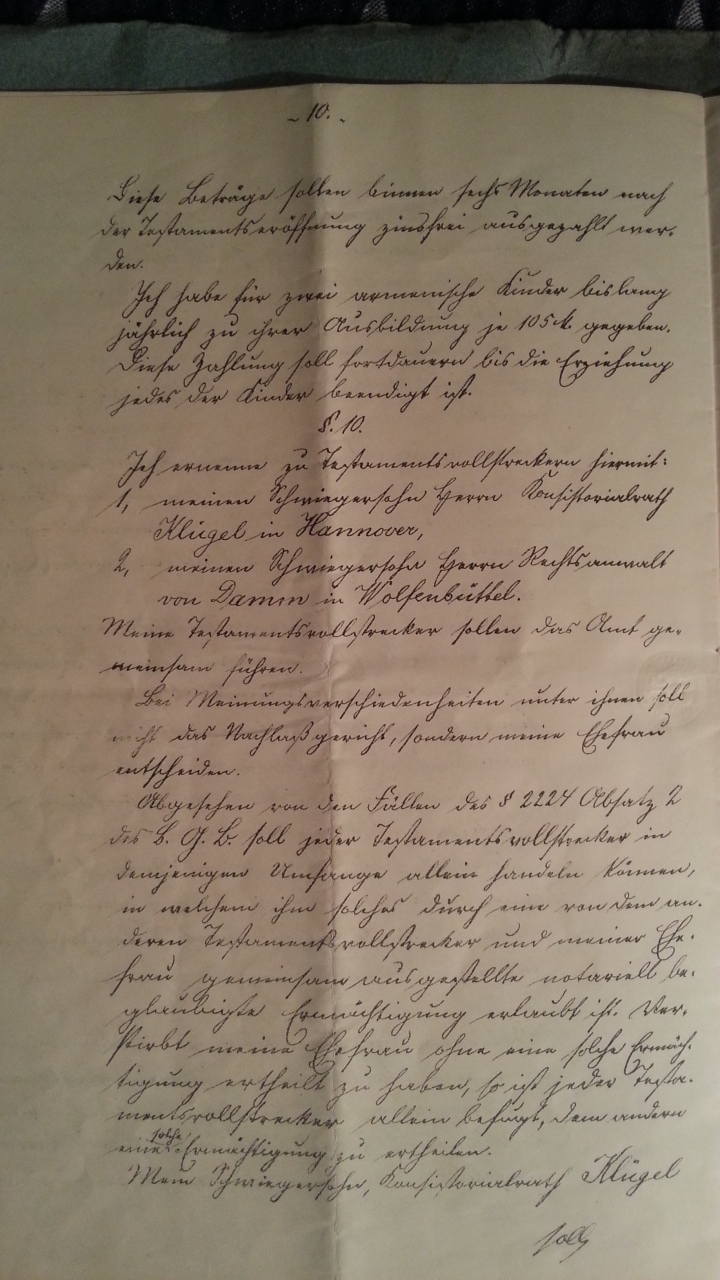 - 10. -
Diese Beträge sollen binnen sechs Monaten nach
der Testamentseröffnung zinsfrei ausgezahlt wer-
den.
Ich habe für zwei armenische Kinder bislang
jährlich zu ihrer Ausbildung je 105 M. gegeben.
Diese Zahlung soll fortdauern bis die Erziehung
jedes der Kinder beendigt ist.
§. 10.
Ich ernenne zu Testamentsvollstreckern hiermit:
1, meinen Schwiegersohn Herrn Konsistorialrath
Klügel in Hannover,
2, meinen Schwiegersohn Herrn Rechtsanwalt
von Damm in Wolfenbüttel.
Meine Testamentsvollstrecker sollen das Amt ge-
meinsam führen.
Bei Meinungsverschiedenheiten unter ihnen soll
nicht das Nachlaßgericht, sondern meine Ehefrau
entscheiden.
Abgesehen von den Fällen des § 2224 Absatz 2
des B. G. B. soll jeder Testamentsvollstrecker in
demjenigen Umfange allein handeln können,
in welchem ihm solches durch eine von dem an-
deren Testamentsvollstrecker und meiner Ehe-
frau gemeinsam ausgestellte notariell be-
glaubigte Ermächtigung erlaubt ist. Ver-
stirbt meine Ehefrau ohne eine solche Ermäch-
tigung ertheilt zu haben, so ist jeder Testa-
mentsvollstrecker allein befugt, dem andern
eine solche Ermächtigung zu ertheilen.
Mein Schwiegersohn, Konsistorialrath Klügel
soll